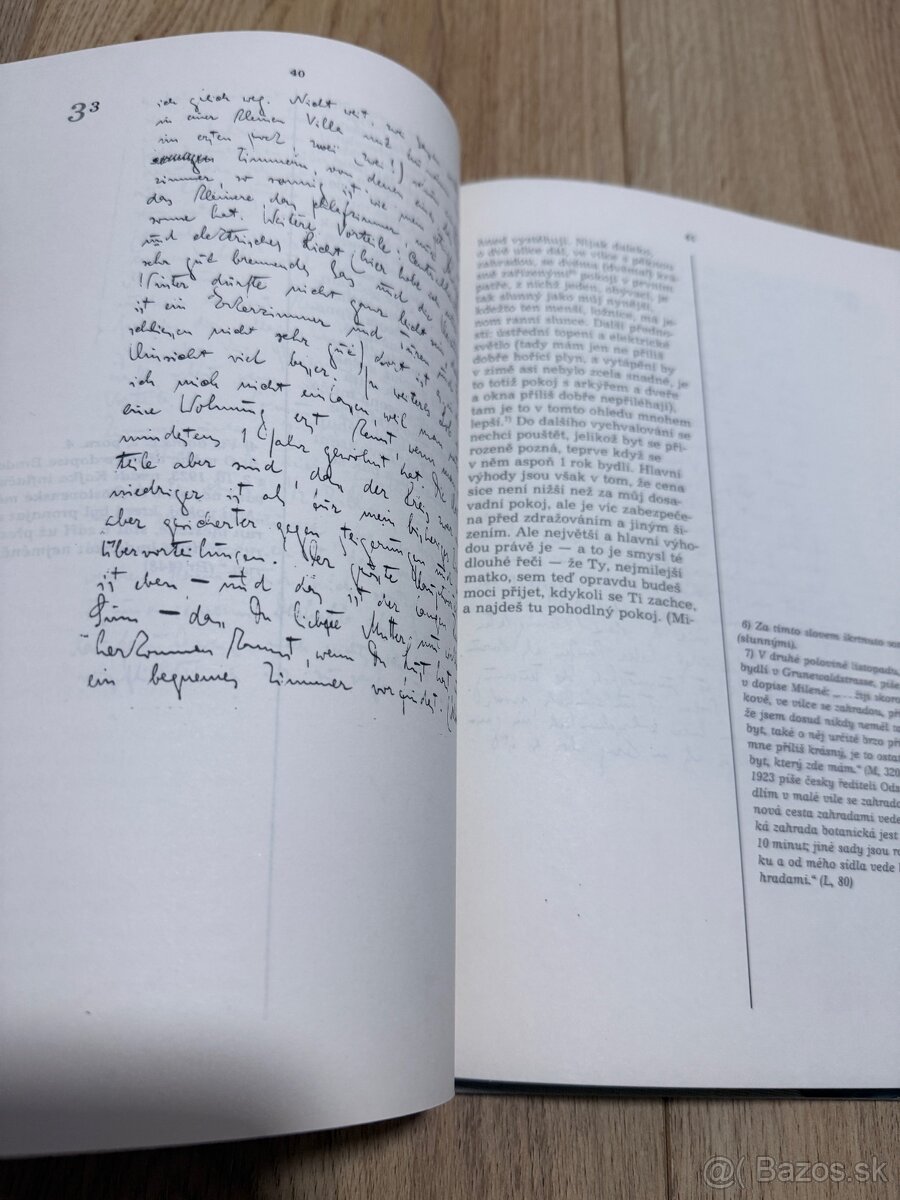 40
3³
ich gleich weg. Nicht weit, zwei
in einer kleinen Villa mit
im ersten Stock zwei (zwei!)
Zimmern, von denen eines
zimmer, so sonnig ist wie mein
das kleinere das Schlafzimmer nur
sonne hat. Weitere Vorteile:
und elektrisches Licht (hier habe ich
sehr gut brennendes Gas und die
Winter dürfte nicht ganz leicht sein
ist ein Erkerzimmer und Türen
schliessen nicht sehr gut) dort ist
Hinsicht viel besser. In weiteres
ich mich nicht einlassen, weil man
eine Wohnung erst kennt, wenn man
mindestens 1 Jahr gewohnt hat. Die
teile aber sind, dass der Preis zwar
niedriger ist als für mein bisheriges
aber gesicherter gegen Steigerungen und
Übervorteilungen. Der grösste
ist eben – und das ist der langen
Sinn – dass Du liebste Mutter nun
herkommen kannst, wenn Du Lust hast
ein bequemes Zimmer vorfindest.
hned vystěhuji. Nijak daleko,
o dvě ulice dál, ve vilce s pěknou
zahradou, se dvěma (dvěma!) krá-
sně zařízenými⁶ pokoji v prvním
patře, z nichž jeden, obývací, je
tak slunný jako můj nynější,
kdežto ten menší, ložnice, má je-
nom ranní slunce. Další předno-
sti: ústřední topení a elektrické
světlo (tady mám jen ne příliš
dobře hořící plyn, a vytápění by
v zimě asi nebylo zcela snadné, je
to totiž pokoj s arkýřem a dveře
a okna příliš dobře nepřiléhají),
tam je to v tomto ohledu mnohem
lepší.⁷) Do dalšího vychvalování se
nechci pouštět, jelikož byt se při-
rozeně pozná, teprve když se
v něm aspoň 1 rok bydlí. Hlavní
výhody jsou však v tom, že cena
sice není nižší než za můj dosa-
vadní pokoj, ale je víc zabezpeče-
na před zdražováním a jiným ši-
zením. Ale největší a hlavní výho-
dou právě je — a to je smysl té
dlouhé řeči — že Ty, nejmilejší
matko, sem teď opravdu budeš
moci přijet, kdykoli se Ti zachce,
a najdeš tu pohodlný pokoj. (Mi-
6) Za tímto slovem škrtnuto
(slunnými).
7) V druhé polovině listopadu,
bydlí v Grunewaldstrasse, píše
v dopise Mileně: „....žiji skoro
kově, ve vilce se zahradou,
že jsem dosud nikdy neměl
byt, také o něj určitě brzo
mne příliš krásný, je to ostat
byt, který zde mám.“ (M, 320
1923 píše česky řediteli Ods
dlím v malé vile se zahrado
nová cesta zahradami vede
ká zahrada botanická jest
10 minut; jiné sady jsou
ku a od mého sídla vede
hradami.“ (L, 80)
@( Bazos.sk